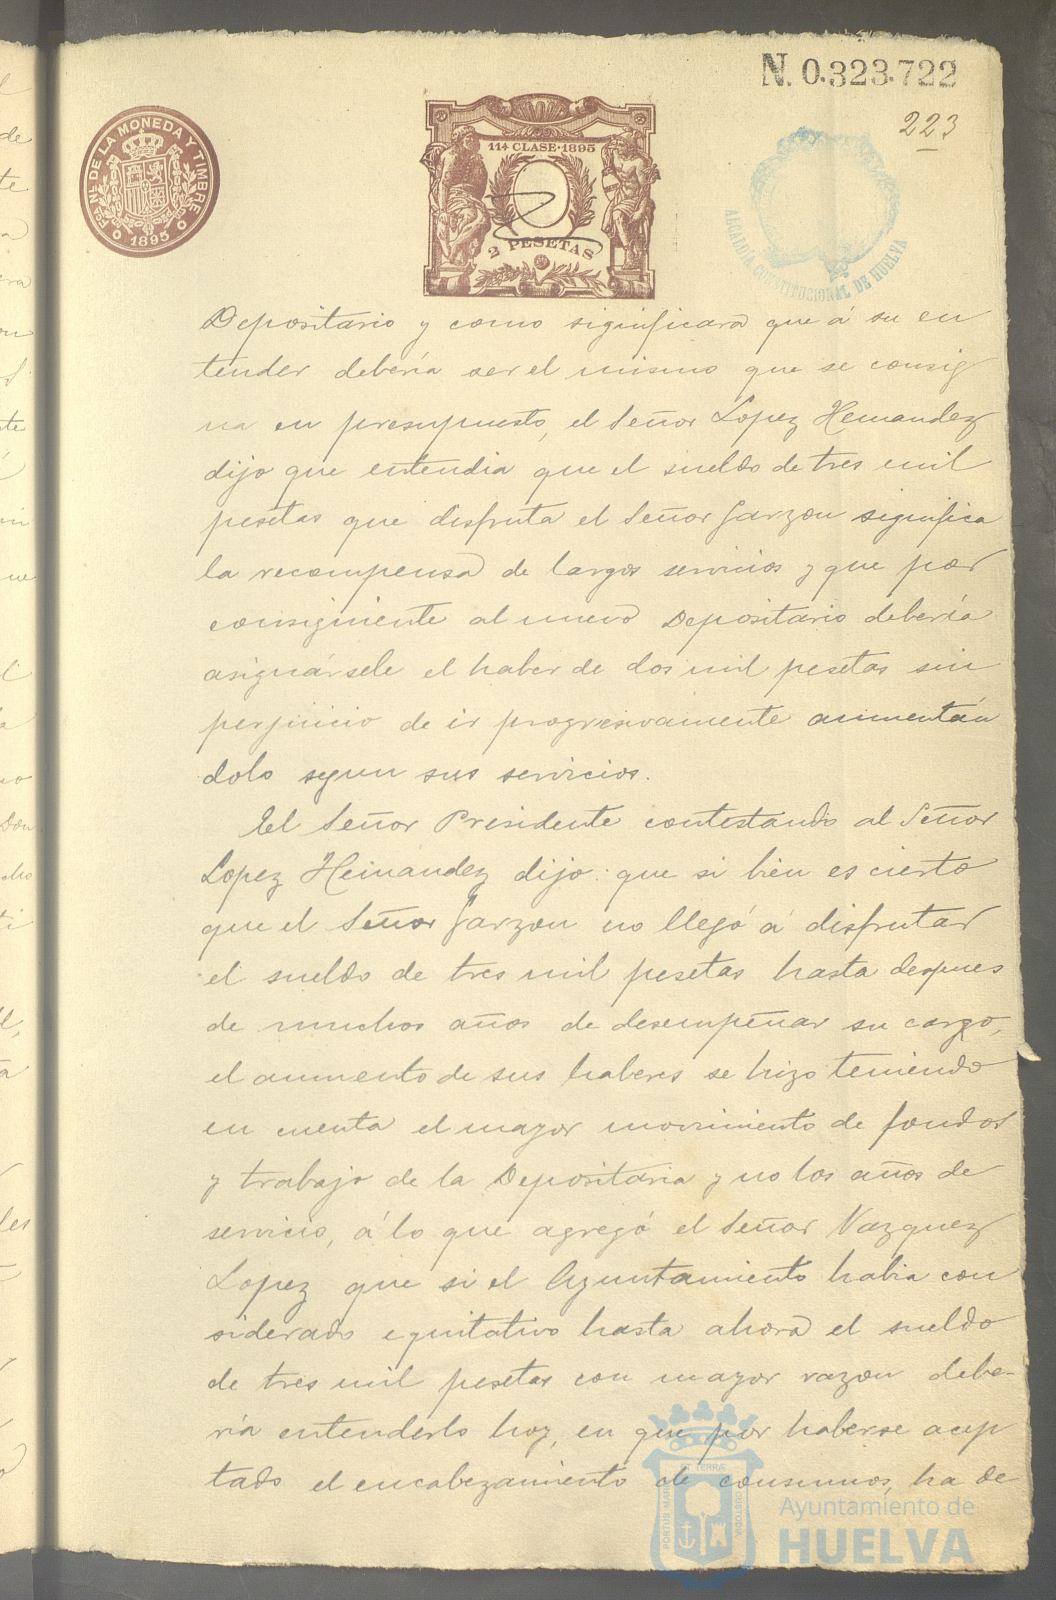 N. 0.323.722
223
Fca. Nl. DE LA MONEDA Y TIMBRE
1895
11ª CLASE·1895
2 PESETAS
ALCALDIA CONSTITUCIONAL DE HUELVA
Depositario y como significara que á su en
tender debería ser el mismo que se consig
na en presupuesto, el Señor Lopez Hernandez
dijo que entendia que el sueldo de tres mil
pesetas que disfruta el Señor Garzon significa
la recompensa de largos servicios y que por
consiguiente al nuevo Depositario debería
asignársele el haber de dos mil pesetas sin
perjuicio de ir progresivamente aumentán
dolo segun sus servicios.
El Señor Presidente contestando al Señor
Lopez Hernández dijo: que si bien es cierto
que el Señor Garzon no llegó á disfrutar
el sueldo de tres mil pesetas hasta despues
de muchos años de desempeñar su cargo,
el aumento de sus haberes se hizo teniendo
en cuenta el mayor movimiento de fondos
y trabajo de la Depositaria y no los años de
servicio, á lo que agregó el Señor Vazquez
Lopez que si el Ayuntamiento habia con
siderado equitativo hasta ahora el sueldo
de tres mil pesetas con mayor razon debe-
ría entenderlo hoy, en que por haberse acep
tado el encabezamiento de consumos, ha de
PORTUS MARIS ET TERRÆ CUSTODIA
Ayuntamiento de
HUELVA